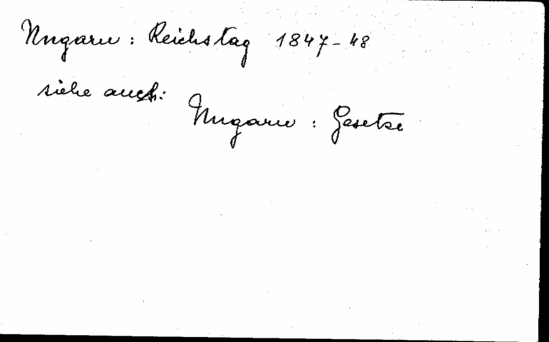 Ungarn : Reichstag 1847-48
siehe auch:
Ungarn : Gesetze